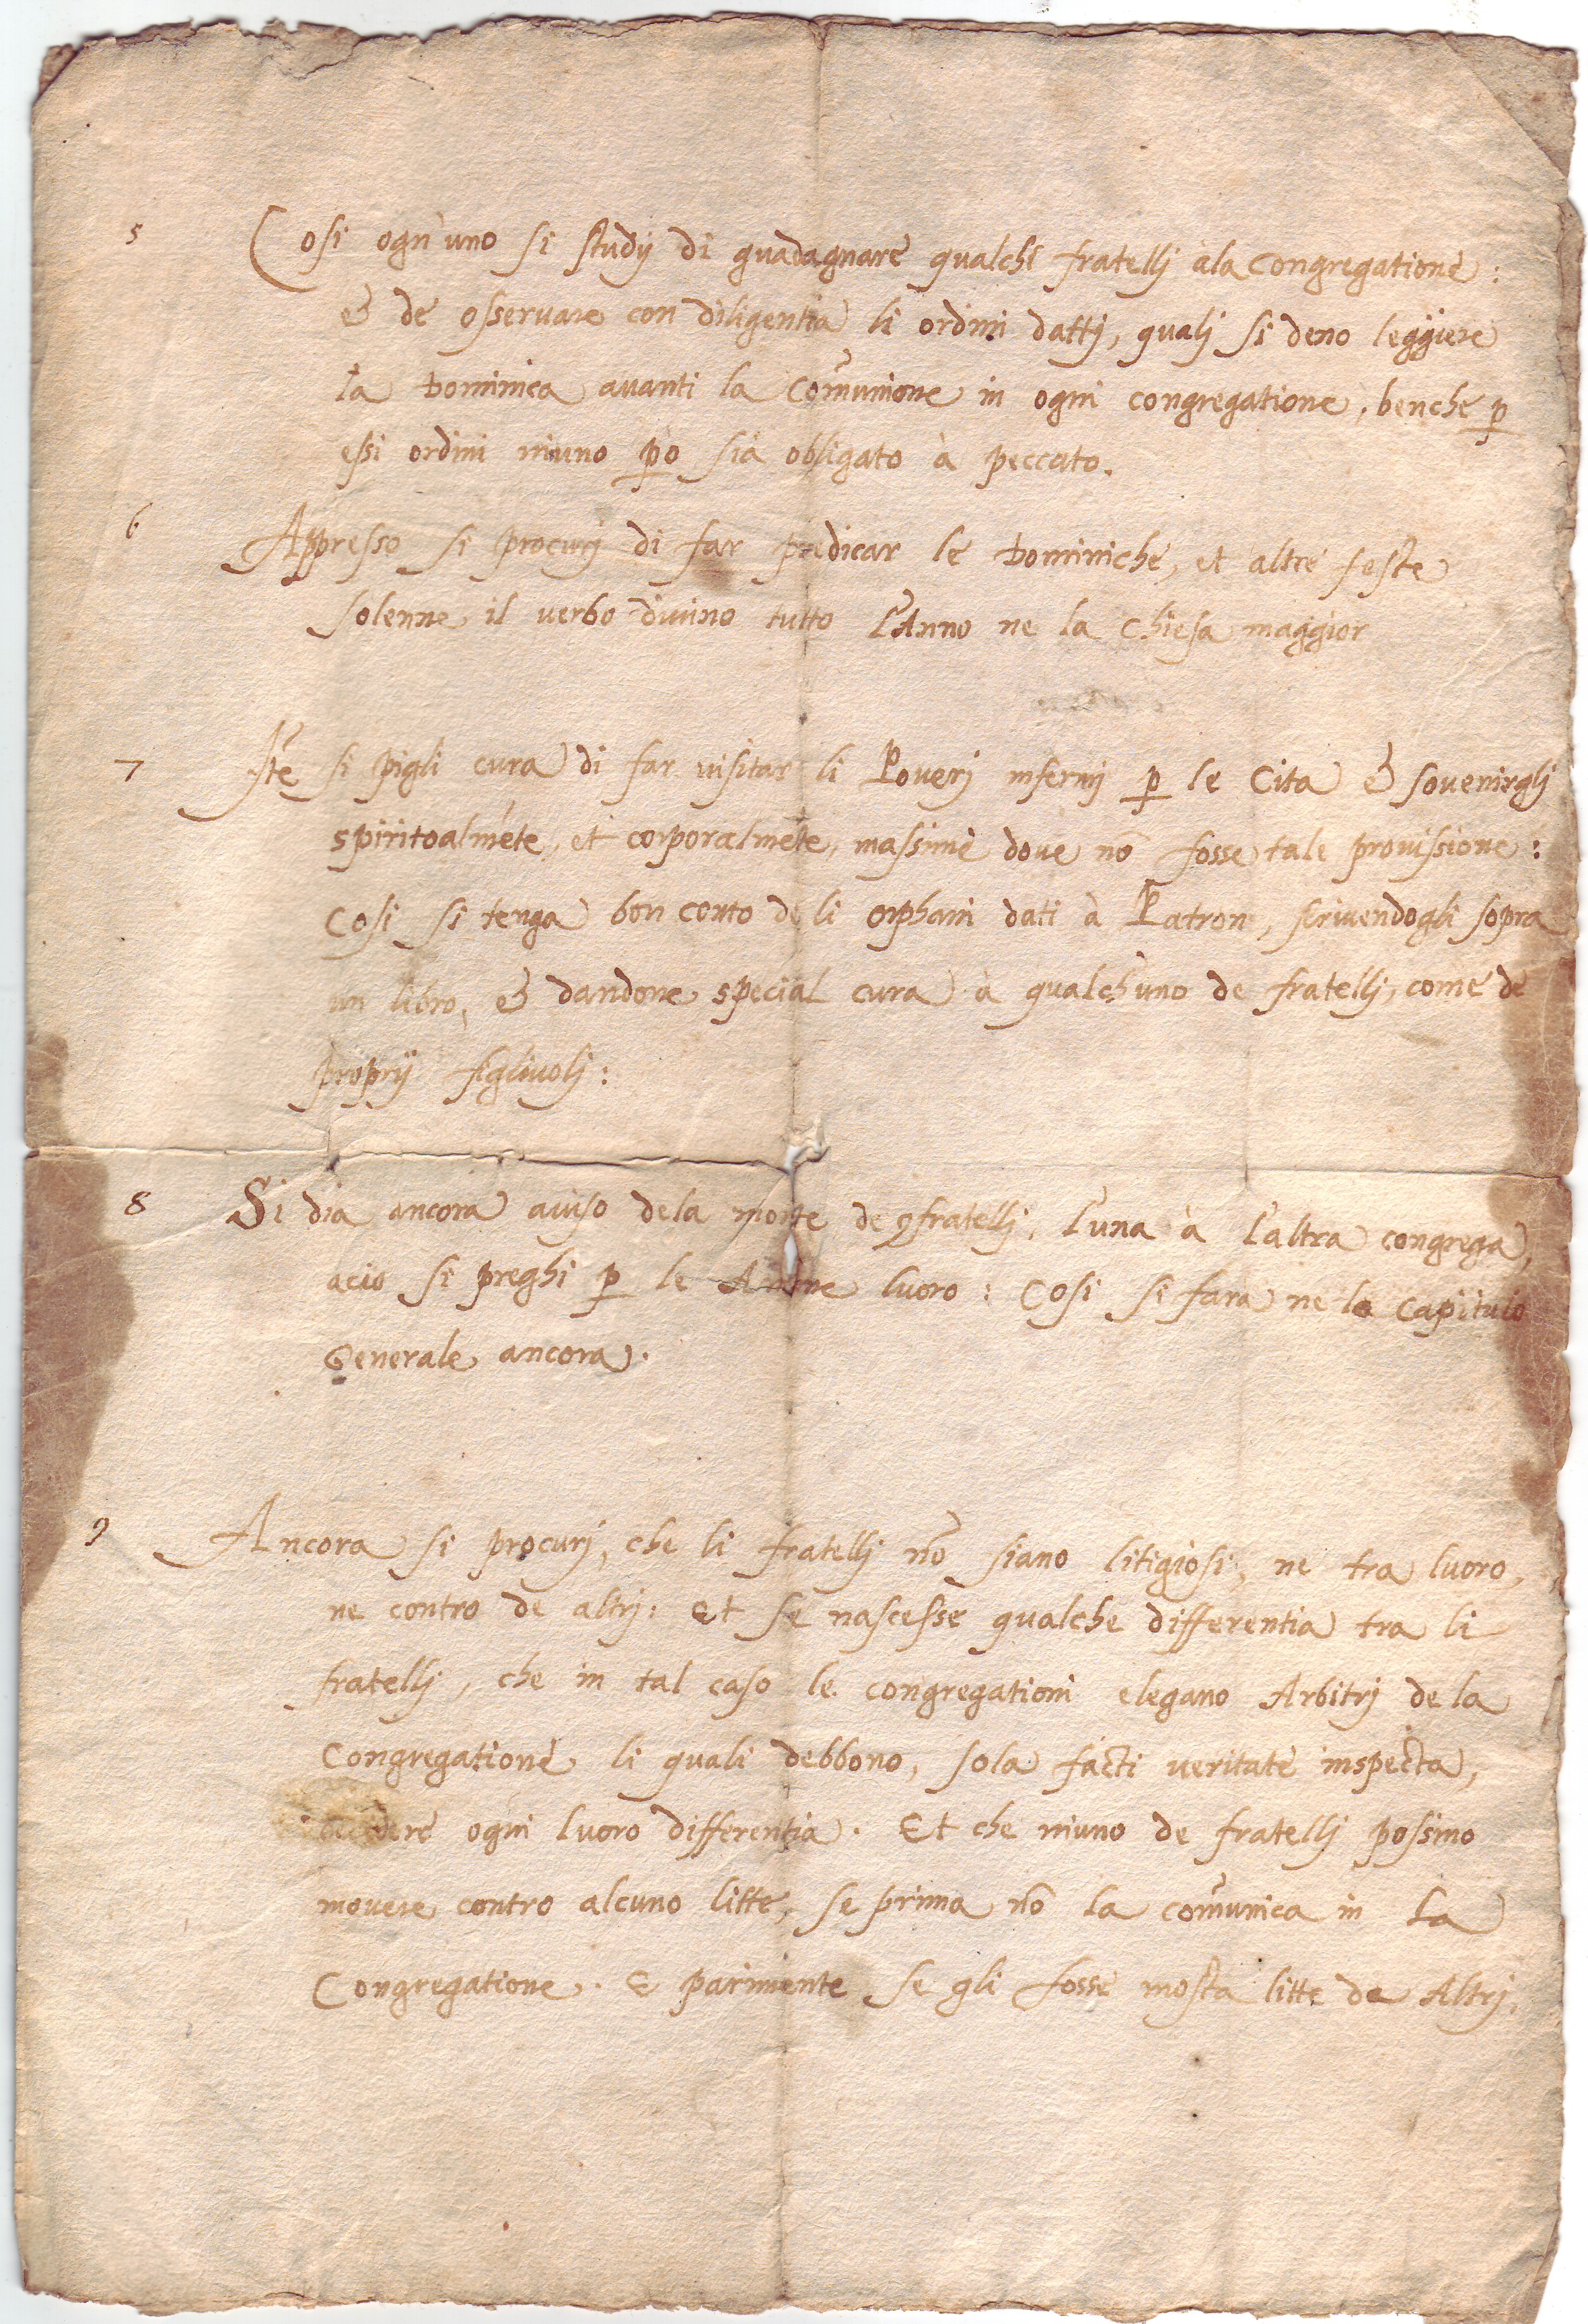 5 Cosi ogn'uno si studij di guadagnare qualchi fratellj àla congregatione:
& de osservare con diligentia li ordini dattj, qualj si deno leggiere
la Dominica avanti la Com̃unione in ogni congregatione, benche p̱
essi ordini niuno p̱o sia obligato à peccato.
6 Appresso si procurj di far predicar le Dominiche, et altre feste
solenne il verbo divino tutto l'Anno ne la chiesa maggior
7 Itē si pigli cura di far visitar li Poverj infermj p̱ le Cita & sovenirglj
spiritoalmẽte, et corporalmẽte, massime dove nõ fosse tale provissione:
Cosi si tenga bon conto de li orphani dati à Patron, scrivendogli sopra
un libro, & dandone special cura à qualch'uno de fratellj, come de
proprij figlivolj:
8 Si dia ancora aviso dela morte de 9fratellj, l'una à l'altra congrega,
acio si preghi p̱ le Anime luoro: Cosi si fara ne lo Capitulo
Generale ancora.
9 Ancora si procurj, che li fratellj nõ siano litigiosi, ne tra luoro,
ne contro de altrj: Et se nascesse qualche differentia tra li
fratellj, che in tal caso le congregationi elegano Arbitrj de la
Congregatione li quali debbono, sola facti veritate inspecta,
ogni luoro differentia. Et che niuno de fratellj possino
movere contro alcuno litte, se prima nõ la com̃unica in la
Congregatione. E parimente se gli fosse mosta litte da Altrj,